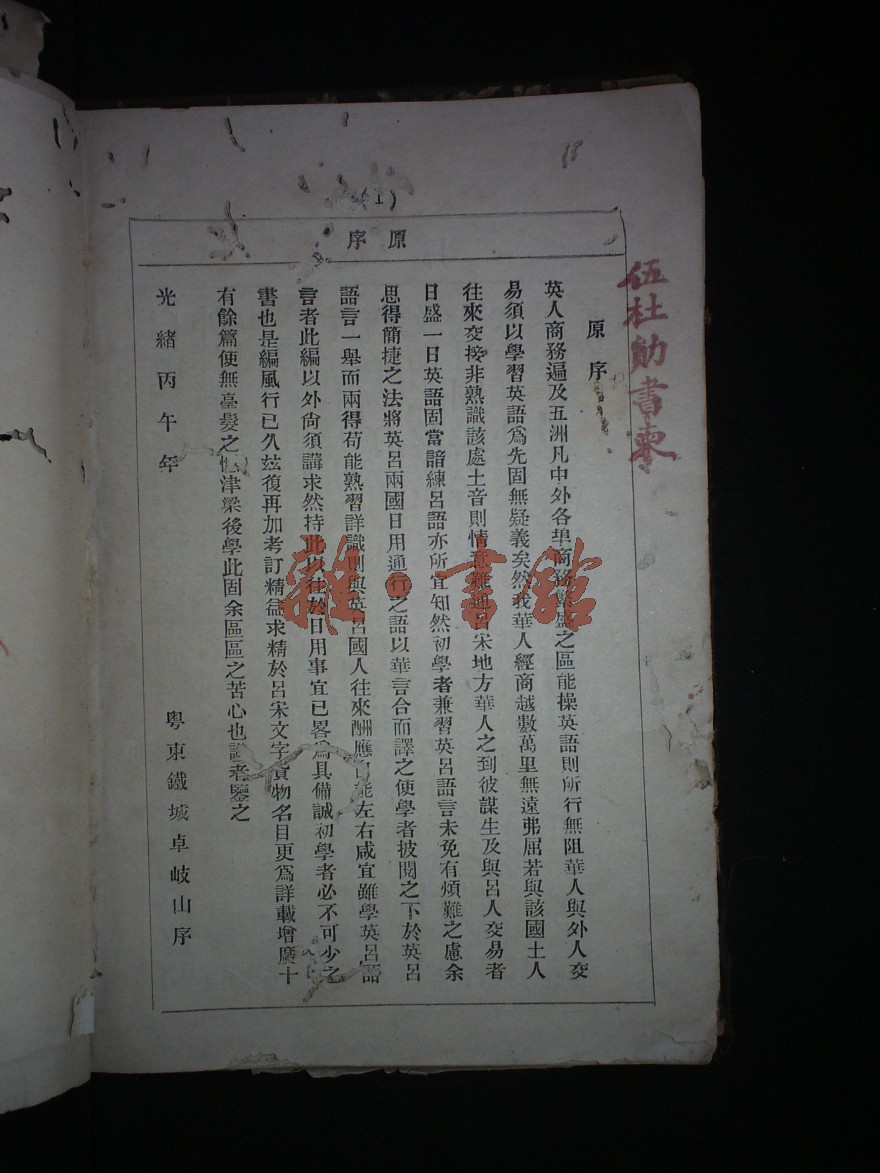 (1)
原序
原序
英人商務遍及五洲凡中外各埠商務繁盛之區能操英語則所行無阻華人與外人交
易須以學習英語爲先固無疑義矣然我華人經商越數萬里無遠弗屆若與該國土人
往來交接非熟識該處土音則情意難通呂宋地方華人之到彼謀生及與呂人交易者
日盛一日英語固當諳練呂語亦所宜知然初學者兼習英呂語言未免有煩難之慮余
思得簡捷之法將英呂兩國日用通行之語以華言合而譯之使學者披閱之下於英呂
語言一舉而兩得苟能熟習詳識則與英呂國人往來酬應自能左右咸宜雖學英呂語
言者此編以外尙須講求然持此以往於日用事宜已畧爲具備誠初學者必不可少之
書也是編風行已久玆復再加考訂精益求精於呂宋文字貨物名目更爲詳載增廣八十
有餘篇便無臺髮之憾津梁後學此固余區區之苦心也識者鑒之
光緒丙午年 粵東鐵城卓岐山序
伍杜
書柬
雜·書館